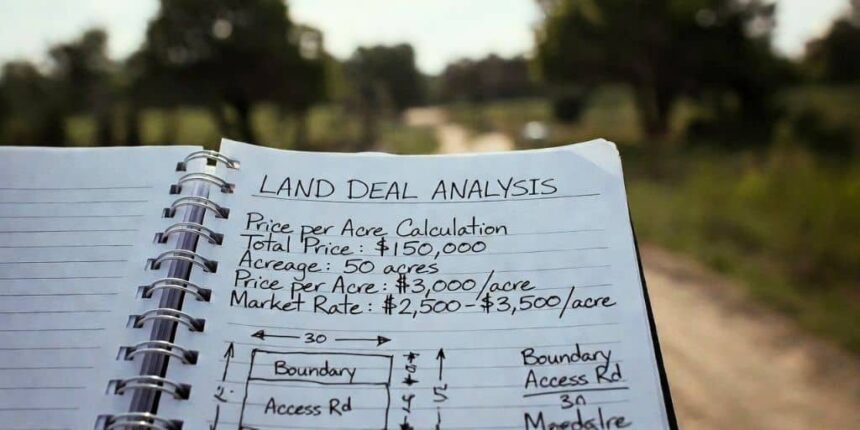 LAND DEAL ANALYSIS
Price per Acre Calculation
Total Price: $150,000
Acreage: 50 acres
Price per Acre: $3,000/acre
Market Rate: $2,500-$3,500/acre
30
Boundary
Access Rd
2
5
Boundary
Access Rd
30